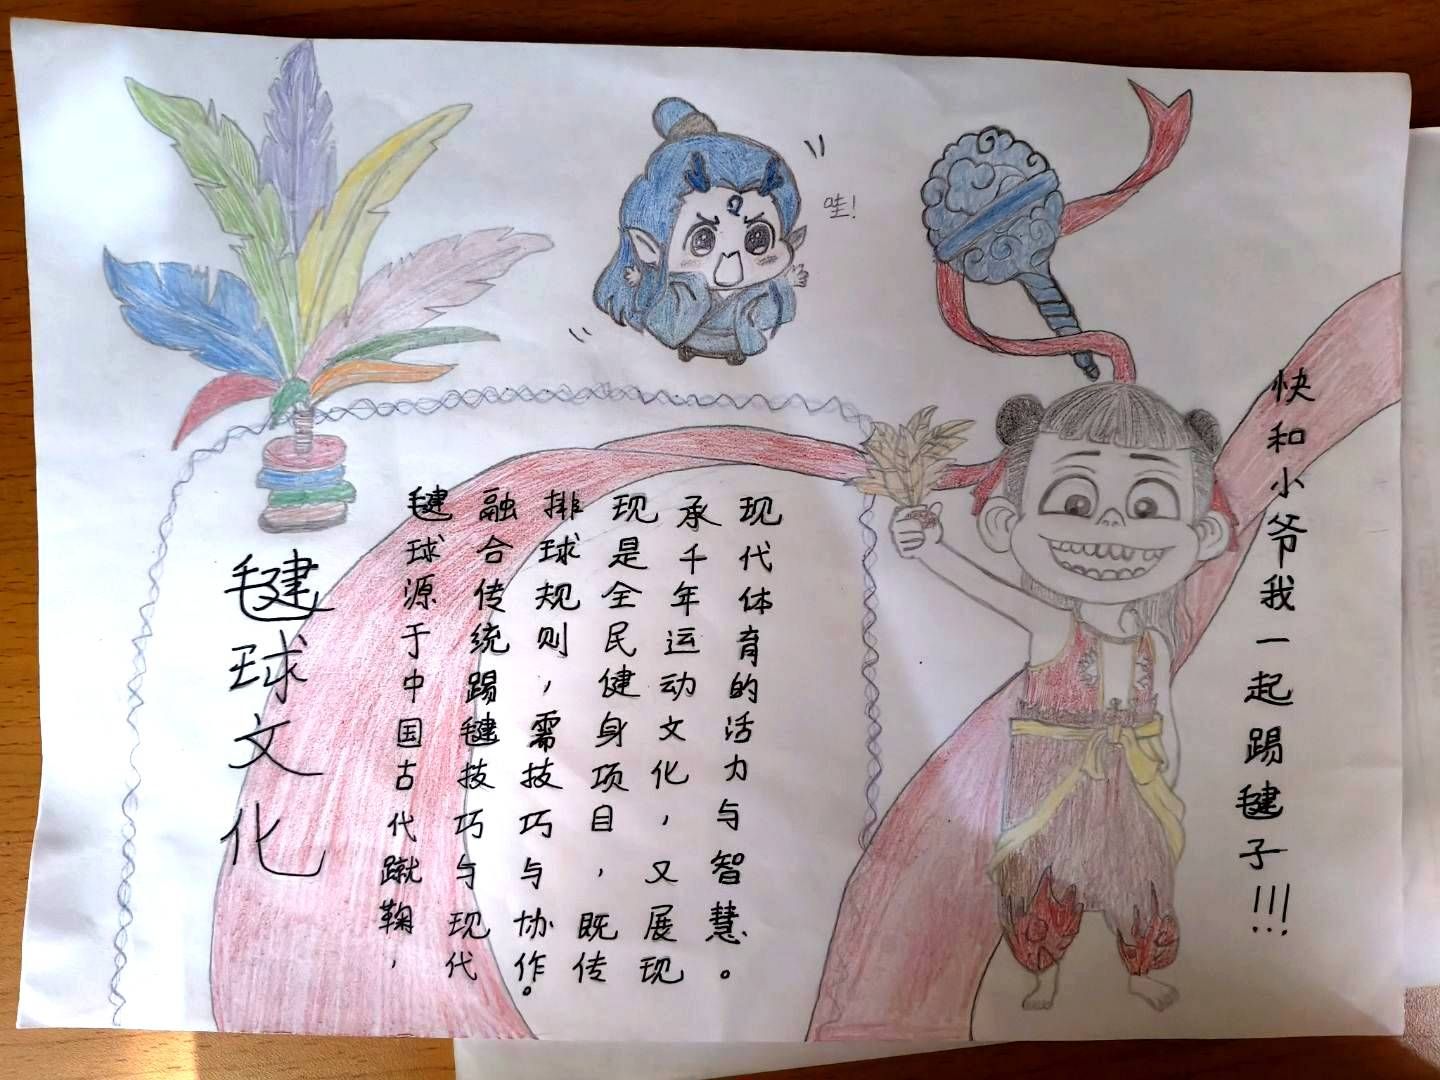 哇!
毽球文化
毽球源于中国古代蹴鞠，
融合传统踢毽技巧与现代
排球规则，需技巧与协作。
现是全民健身项目，既传
承千年运动文化，又展现
现代体育的活力与智慧。
快和小爷我一起踢毽子!!!